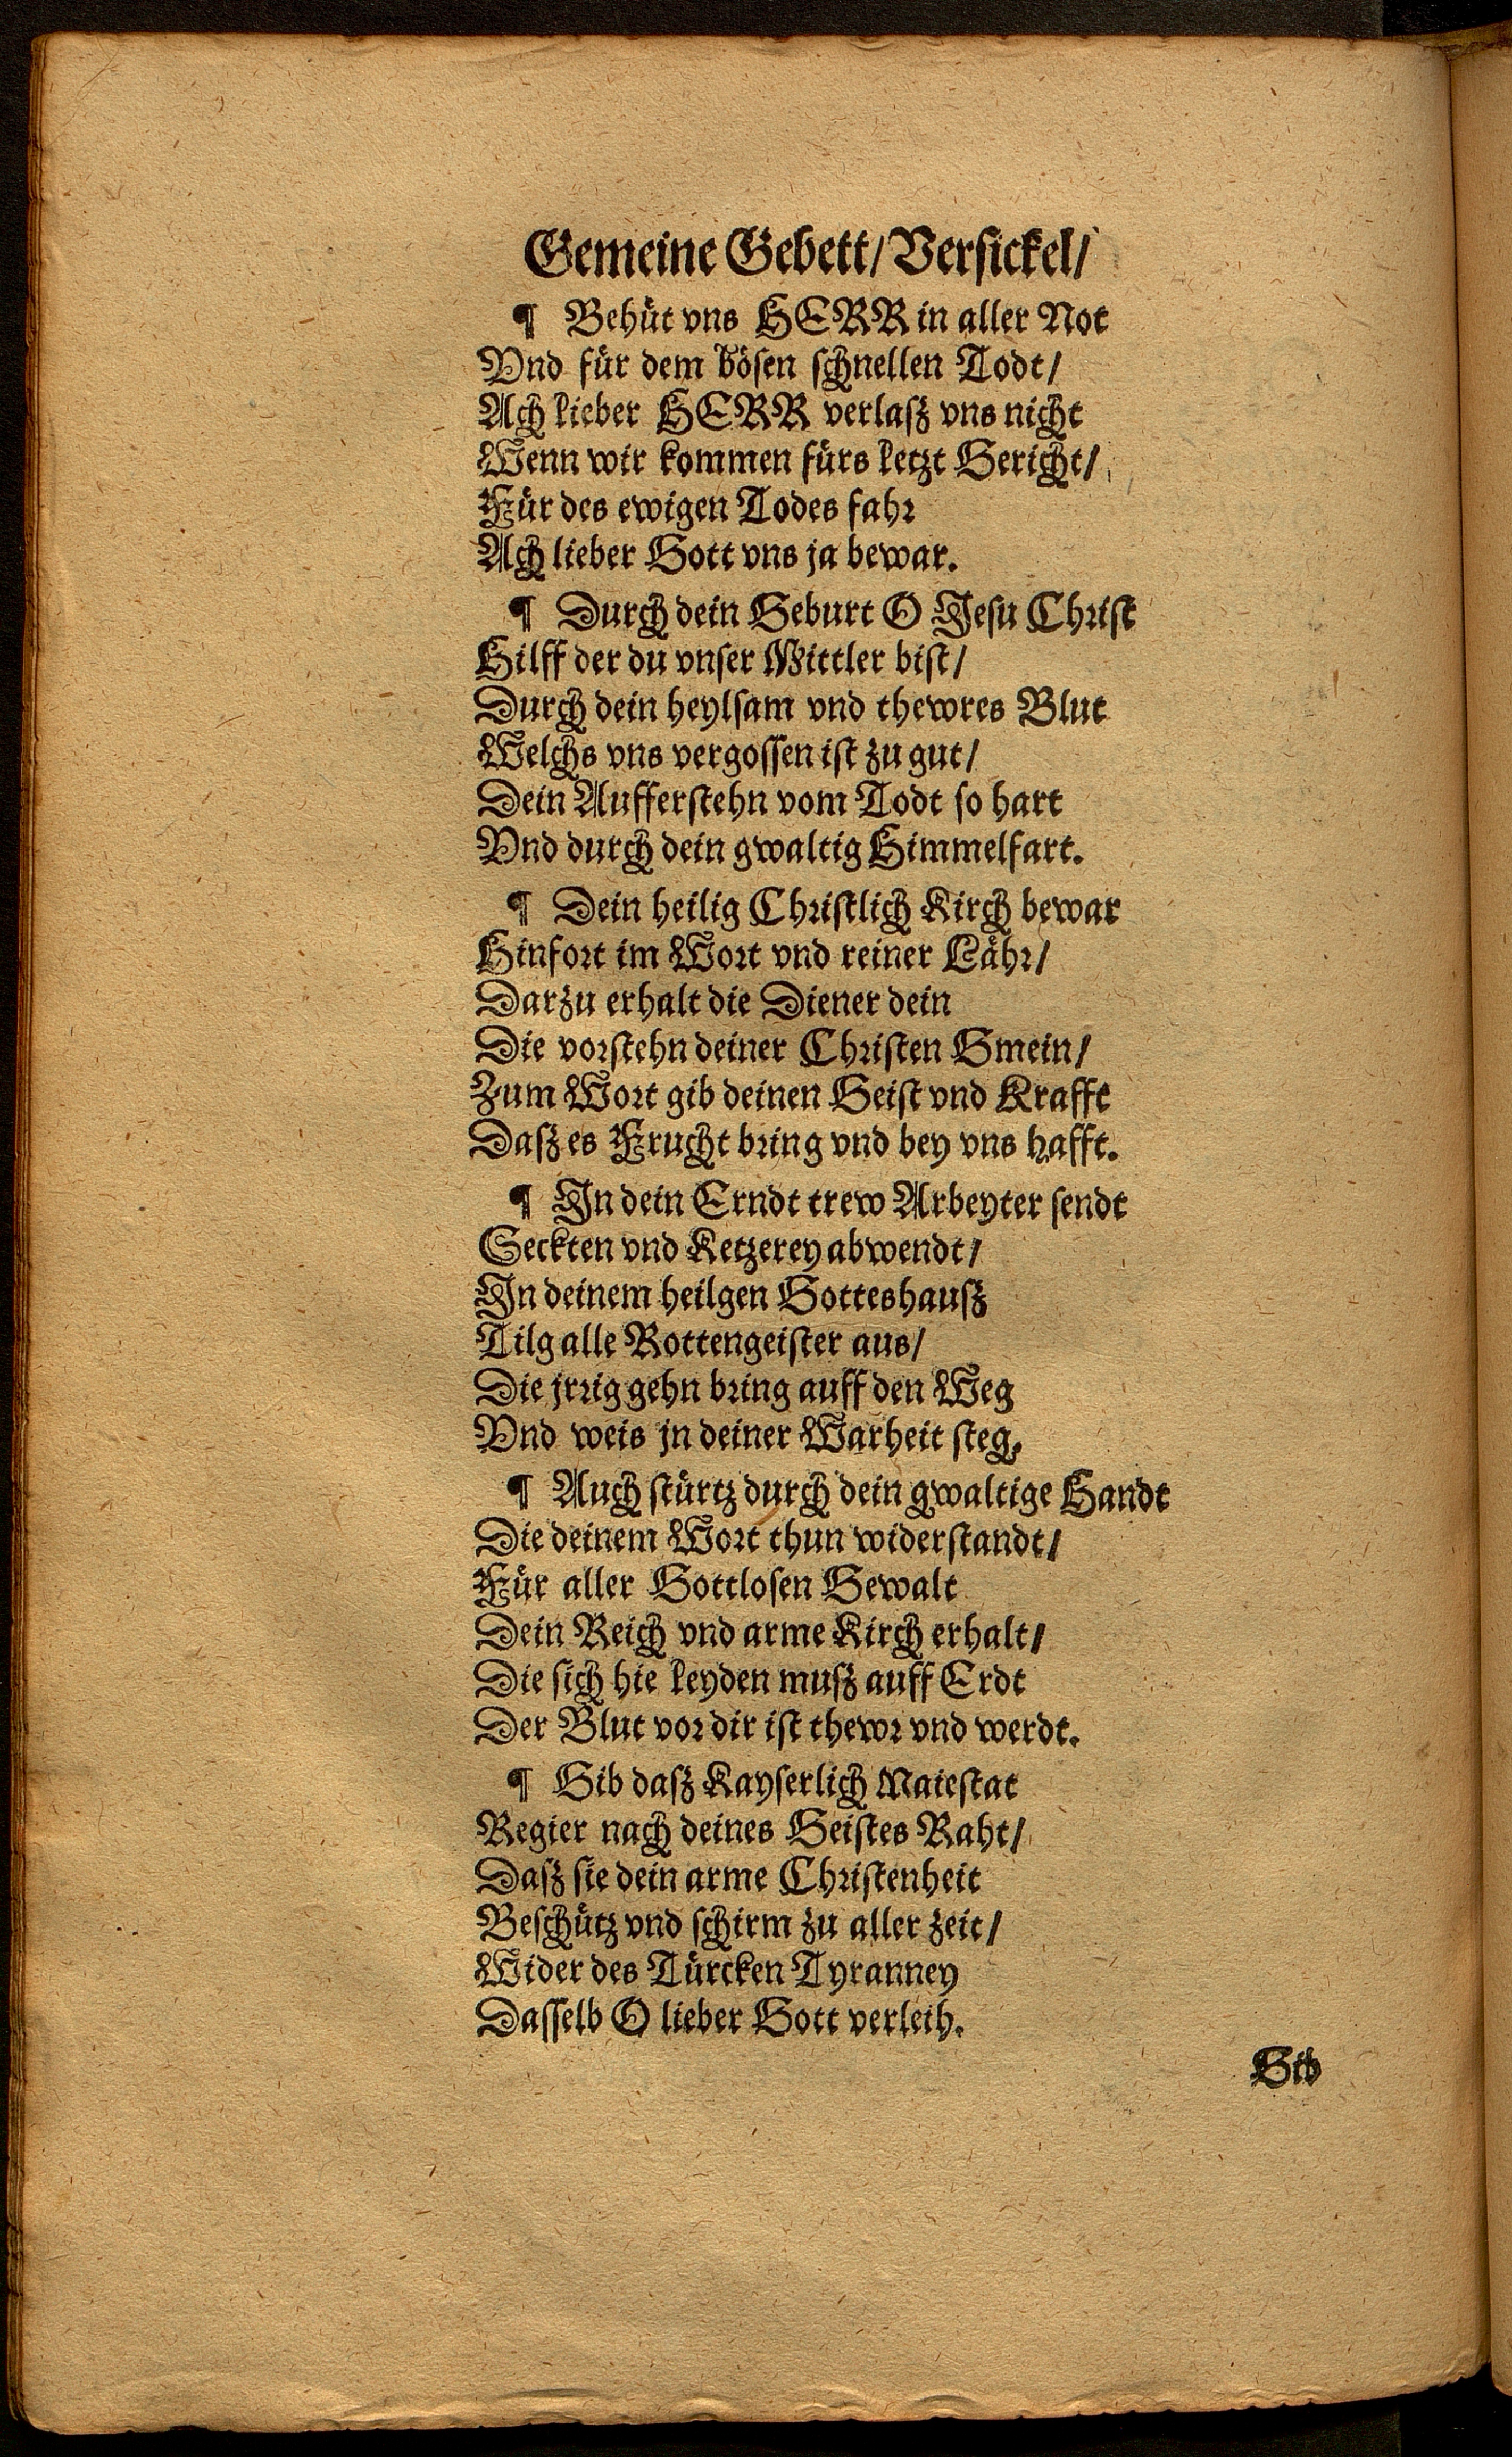 Gemeine Gebett/ Versickel/
¶ Behüt vns HERR in aller Not
Vnd für dem bösen schnellen Todt/
Ach lieber HERR verlasz vns nicht
Wenn wir kommen fürs letzt Gericht/
Für des ewigen Todes fahr
Ach lieber Gott vns ja bewar.
¶ Durch dein Geburt O Jesu Christ
Hilff der du vnser Mittler bist/
Durch dein heylsam vnd thewres Blut
Welchs vns vergossen ist zu gut/
Dein Aufferstehn vom Todt so hart
Vnd durch dein gwaltig Himmelfart.
¶ Dein heilig Christlich Kirch bewar
Hinfort im Wort vnd reiner Lähr/
Darzu erhalt die Diener dein
Die vorstehn deiner Christen Gmein/
Zum Wort gib deinen Geist vnd Krafft
Dasz es Frucht bring vnd bey vns hafft.
¶ In dein Erndt trew Arbeyter sendt
Seckten vnd Ketzerey abwendt/
In deinem heilgen Gotteshausz
Tilg alle Rottengeister aus/
Die jrrig gehn bring auff den Weg
Vnd weis jn deiner Warheit steg.
¶ Auch stürtz durch dein gwaltige Handt
Die deinem Wort thun widerstandt/
Für aller Gottlosen Gewalt
Dein Reich vnd arme Kirch erhalt/
Die sich hie leyden musz auff Erdt
Der Blut vor dir ist thewr vnd werdt.
¶ Gib dasz Kayserlich Maiestat
Regier nach deines Geistes Raht/
Dasz sie dein arme Christenheit
Beschütz vnd schirm zu aller zeit/
Wider des Türcken Tyranney
Dasselb O lieber Gott verleih.
Gib